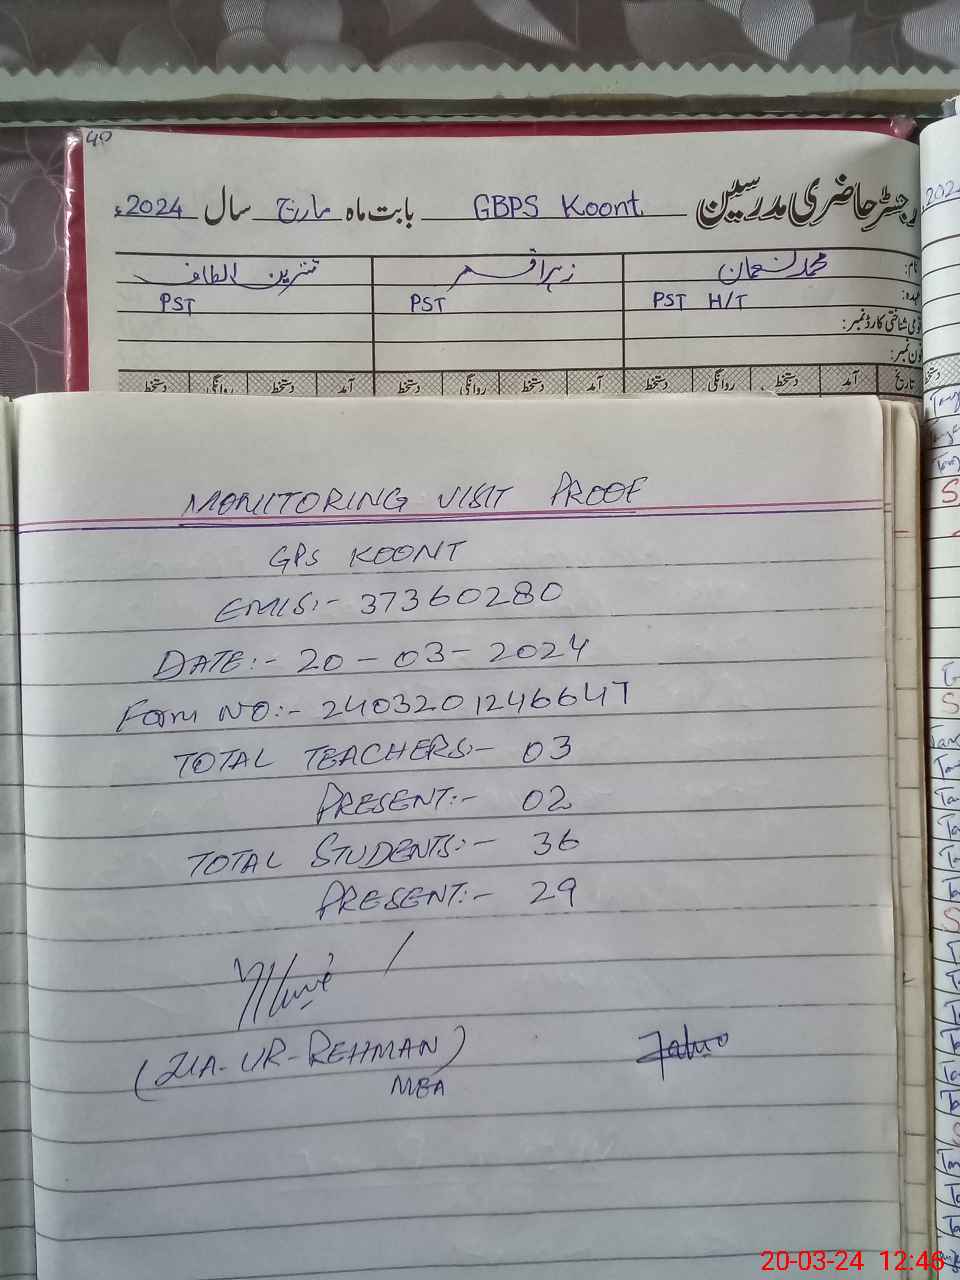 40
رجسٹر حاضری مدرسین GBPS Koont بابت ماہ مارچ سال 2024ء
نام: محمد نعمان زہرا نسرین الطاف
عہدہ: PST H/T PST PST
قومی شناختی کارڈ نمبر:
فون نمبر:
تاریخ آمد دستخط روانگی دستخط آمد دستخط روانگی دستخط آمد دستخط روانگی دستخط
MONITORING VISIT PROOF
GPS KOONT
EMIS:- 37360280
DATE:- 20-03-2024
Form NO:- 240320124664T
TOTAL TEACHERS:- 03
PRESENT:- 02
TOTAL STUDENTS:- 36
PRESENT:- 29
(ZIA-UR-REHMAN)
MEA
20-03-24 12:46